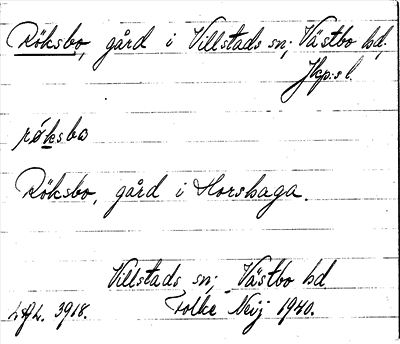 Röksbo, gård i Villstads sn; Västbo hd.
Jkp:s l.
røksbo
Röksbo, gård i Horshaga.
Villstads sn; Västbo hd
Folke Neij 1940.
3918.